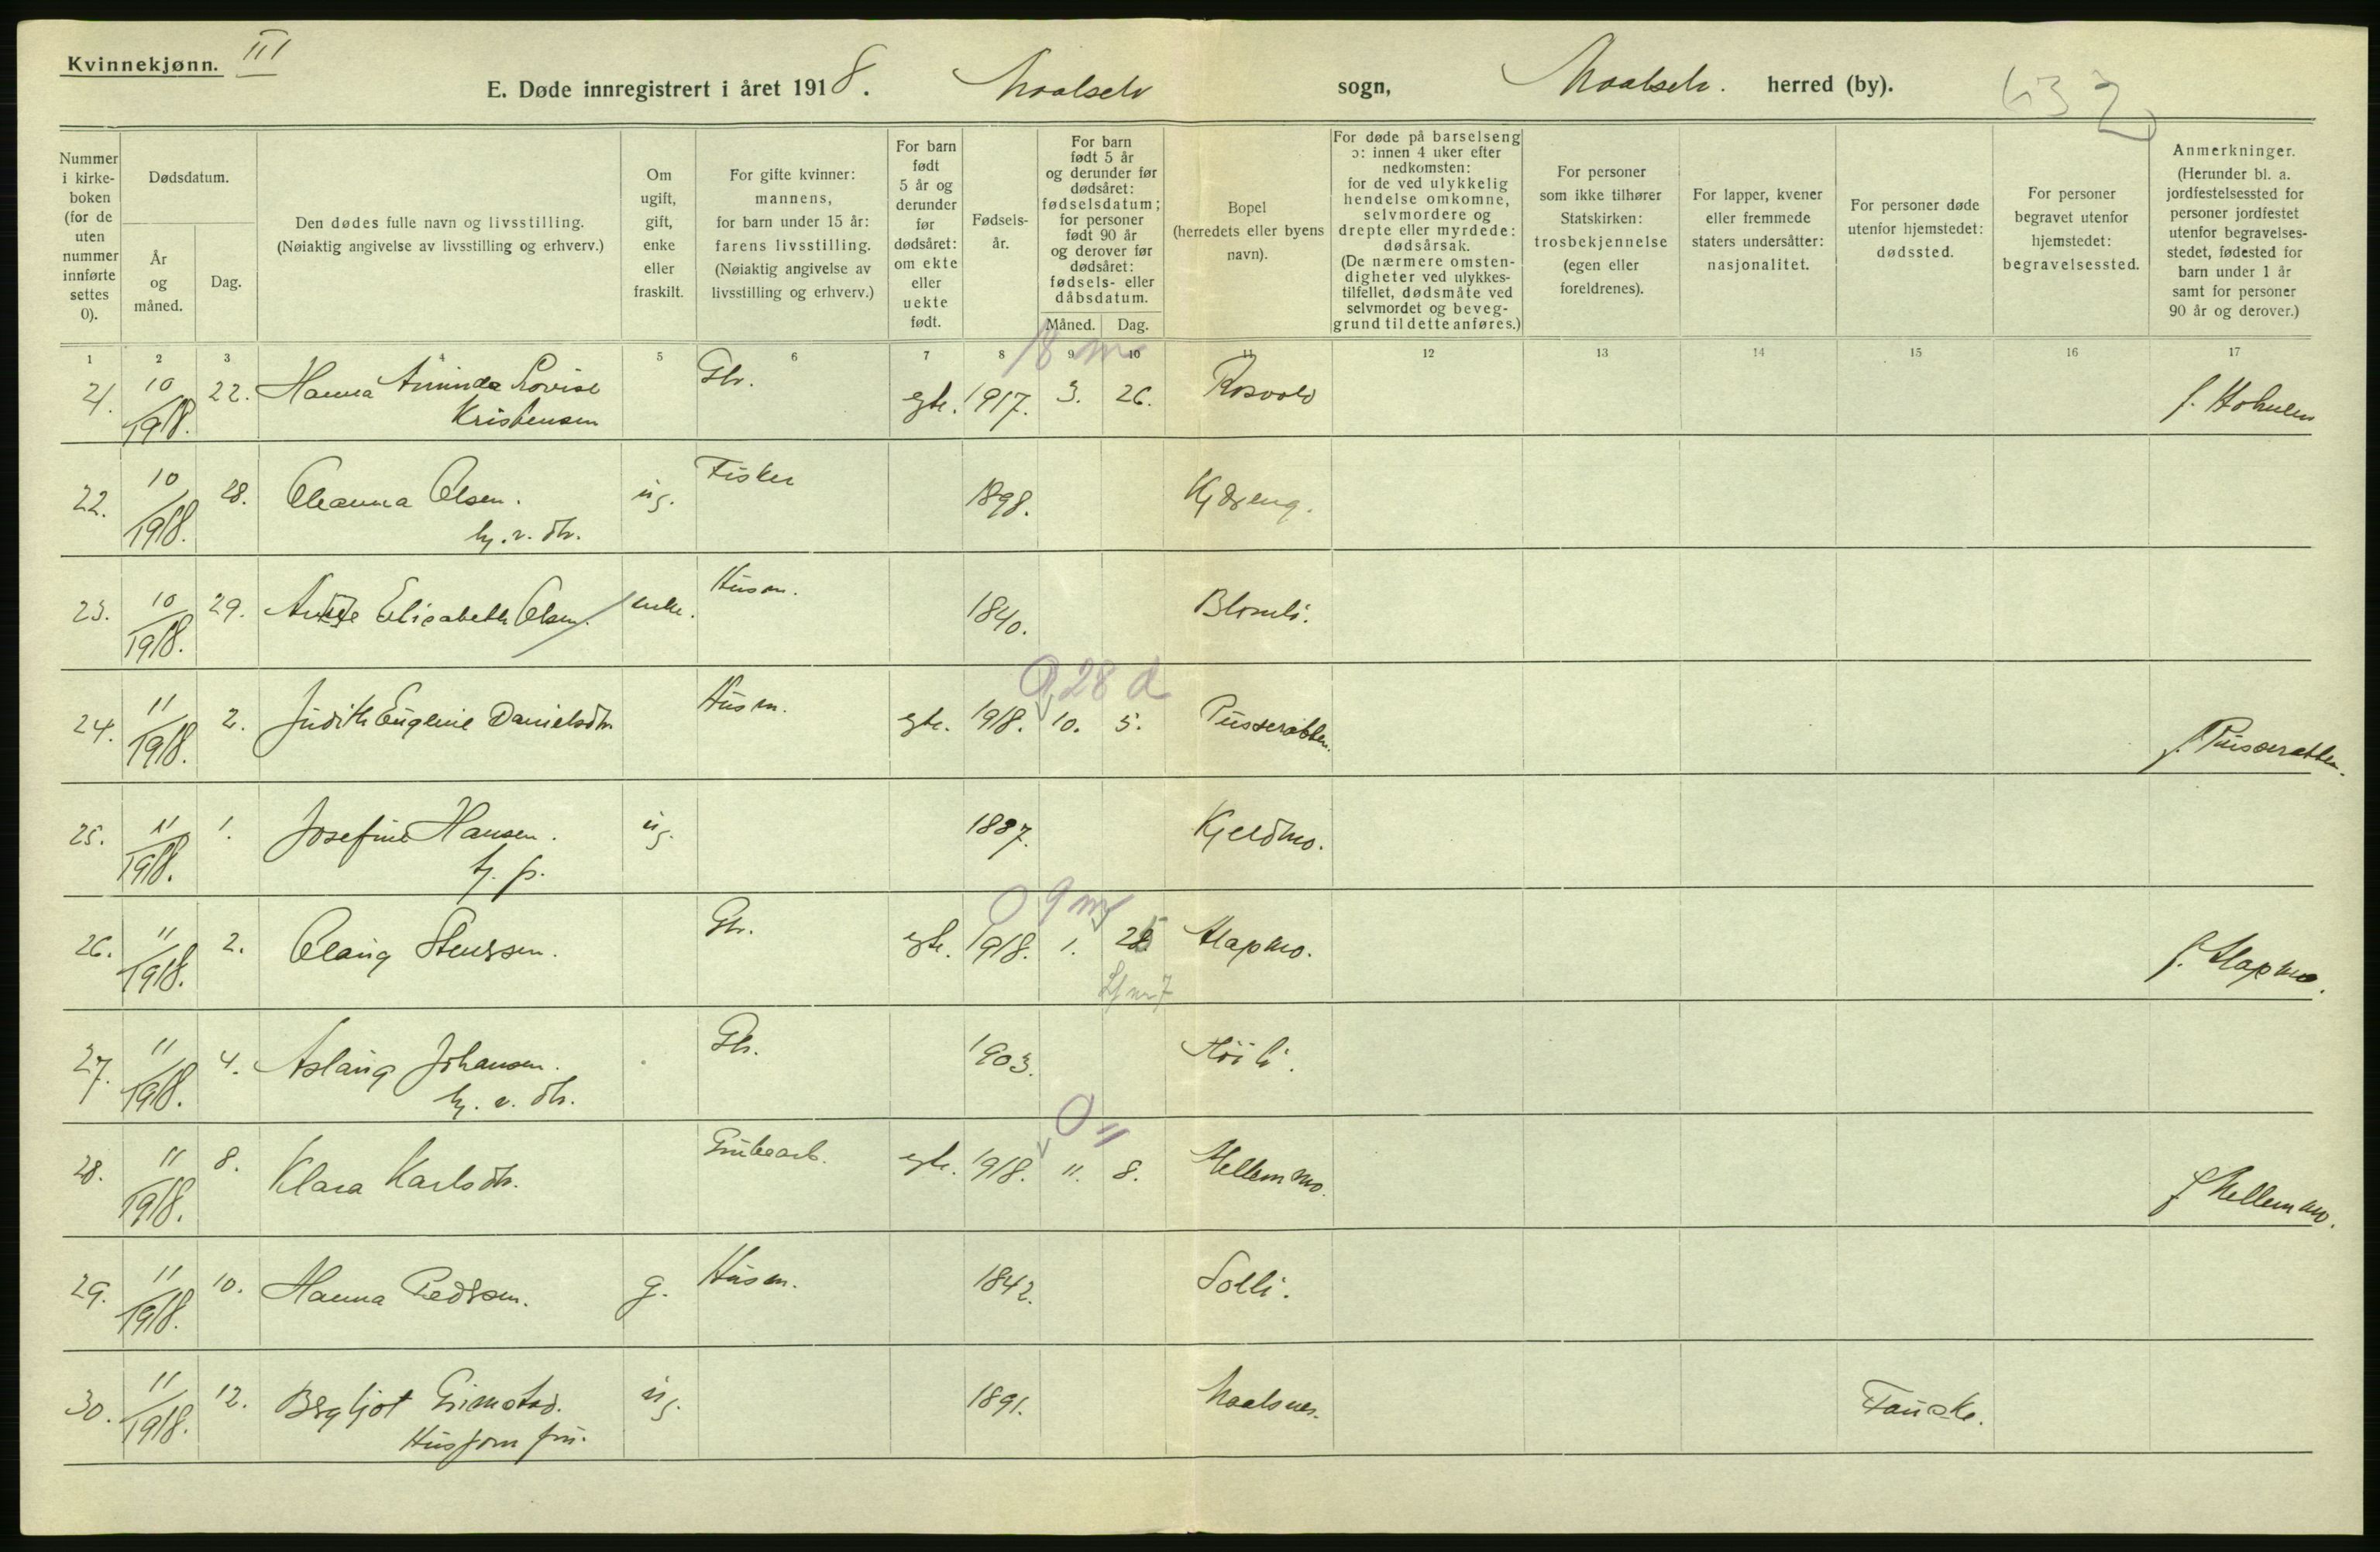 Kvinnekjønn. III
E. Døde innregistrert i året 1918. Maalselv sogn, Maalselv. herred (by). 632
Nummer i kirke-boken (for de uten nummer innførte settes 0).
Dødsdatum.
År og måned.
Dag.
Den dødes fulle navn og livsstilling.
(Nøiaktig angivelse av livsstilling og erhverv.)
Om ugift, gift, enke eller fraskilt.
For gifte kvinner: mannens, for barn under 15 år: farens livsstilling. (Nøiaktig angivelse av livsstilling og erhverv.)
For barn født 5 år og derunder før dødsåret: om ekte eller uekte født.
Fødsels-år.
For barn født 5 år og derunder før dødsåret: fødselsdatum; for personer født 90 år og derover før dødsåret: fødsels- eller dåbsdatum.
Måned. Dag.
Bopel (herredets eller byens navn).
For døde på barselseng ɔ: innen 4 uker efter nedkomsten: for de ved ulykkelig hendelse omkomne, selvmordere og drepte eller myrdede: dødsårsak. (De nærmere omsten-digheter ved ulykkes-tilfellet, dødsmåte ved selvmordet og beveg-grund til dette anføres.)
For personer som ikke tilhører Statskirken: trosbekjennelse (egen eller foreldrenes).
For lapper, kvener eller fremmede staters undersåtter: nasjonalitet.
For personer døde utenfor hjemstedet: dødssted.
For personer begravet utenfor hjemstedet: begravelsessted.
Anmerkninger. (Herunder bl. a. jordfestelsessted for personer jordfestet utenfor begravelses-stedet, fødested for barn under 1 år samt for personer 90 år og derover.)
1 2 3 4 5 6 7 8 9 10 11 12 13 14 15 16 17
18 m
21. 10/1918. 22. Hanna Aminda Lovise Gbr. egte. 1917. 3. 26. Rosvold f. Hohulen
Kristensen
22. 10/1918. 28. Oleanna Olsen. ug. Fisker 1898. Kjæreng.
hj. v. dtr.
23. 10/1918. 29. Anne Elisabeth Olsen. enke. Husm. 1840. Blomli.
28 d
24. 11/1918. 2. Judith Eugenie Danielsdtr. Husm. egte. 1918. 10. 5. Pusseratten. f. Pusseratten.
25. 11/1918. 1. Josefine Hansen. ug. 1887. Kjeldmo.
tj. p.
0 9 m
26. 11/1918. 2. Olaug Stenssen. Gbr. egte. 1918. 1. 25 Alapmo. f. Alapmo.
27. 11/1918. 4. Aslaug Johansen. Gbr. 1903. Høili.
hj. v. dtr.
0 11
28. 11/1918. 8. Klara Karlsdtr. Grubearb. egte. 1918. 11. 8. Mellemmo. f Mellemmo.
29. 11/1918. 10. Hanna Pedersen. g. Husm. 1842. Solli.
30. 11/1918. 12. Bergljot Grimstad. ug. 1891. Maalsnes. Fauske.
Husjomfru.